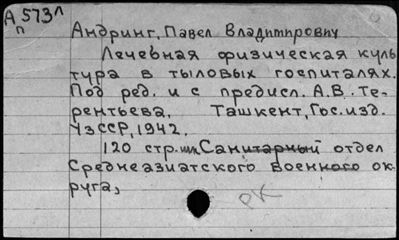 А 573л
п
Андринг, Павел Владимирович
Лечебная физическая куль
тура в тыловых госпиталях.
Под ред. и с предисл. А.В. Те-
рентьева, Ташкент, Гос.изд.
УзССР, 1942.
120 стр. Санитарный отдел
Среднеазиатского военного ок-
руга,